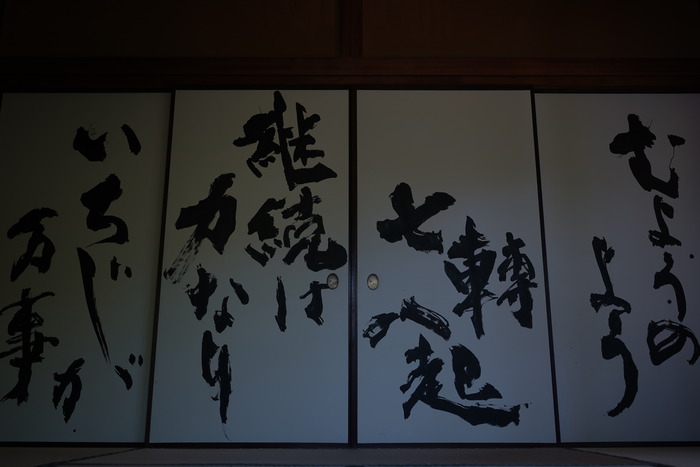 むようの
よう
七轉
八起
継続は
力なり
いちじが
万事が